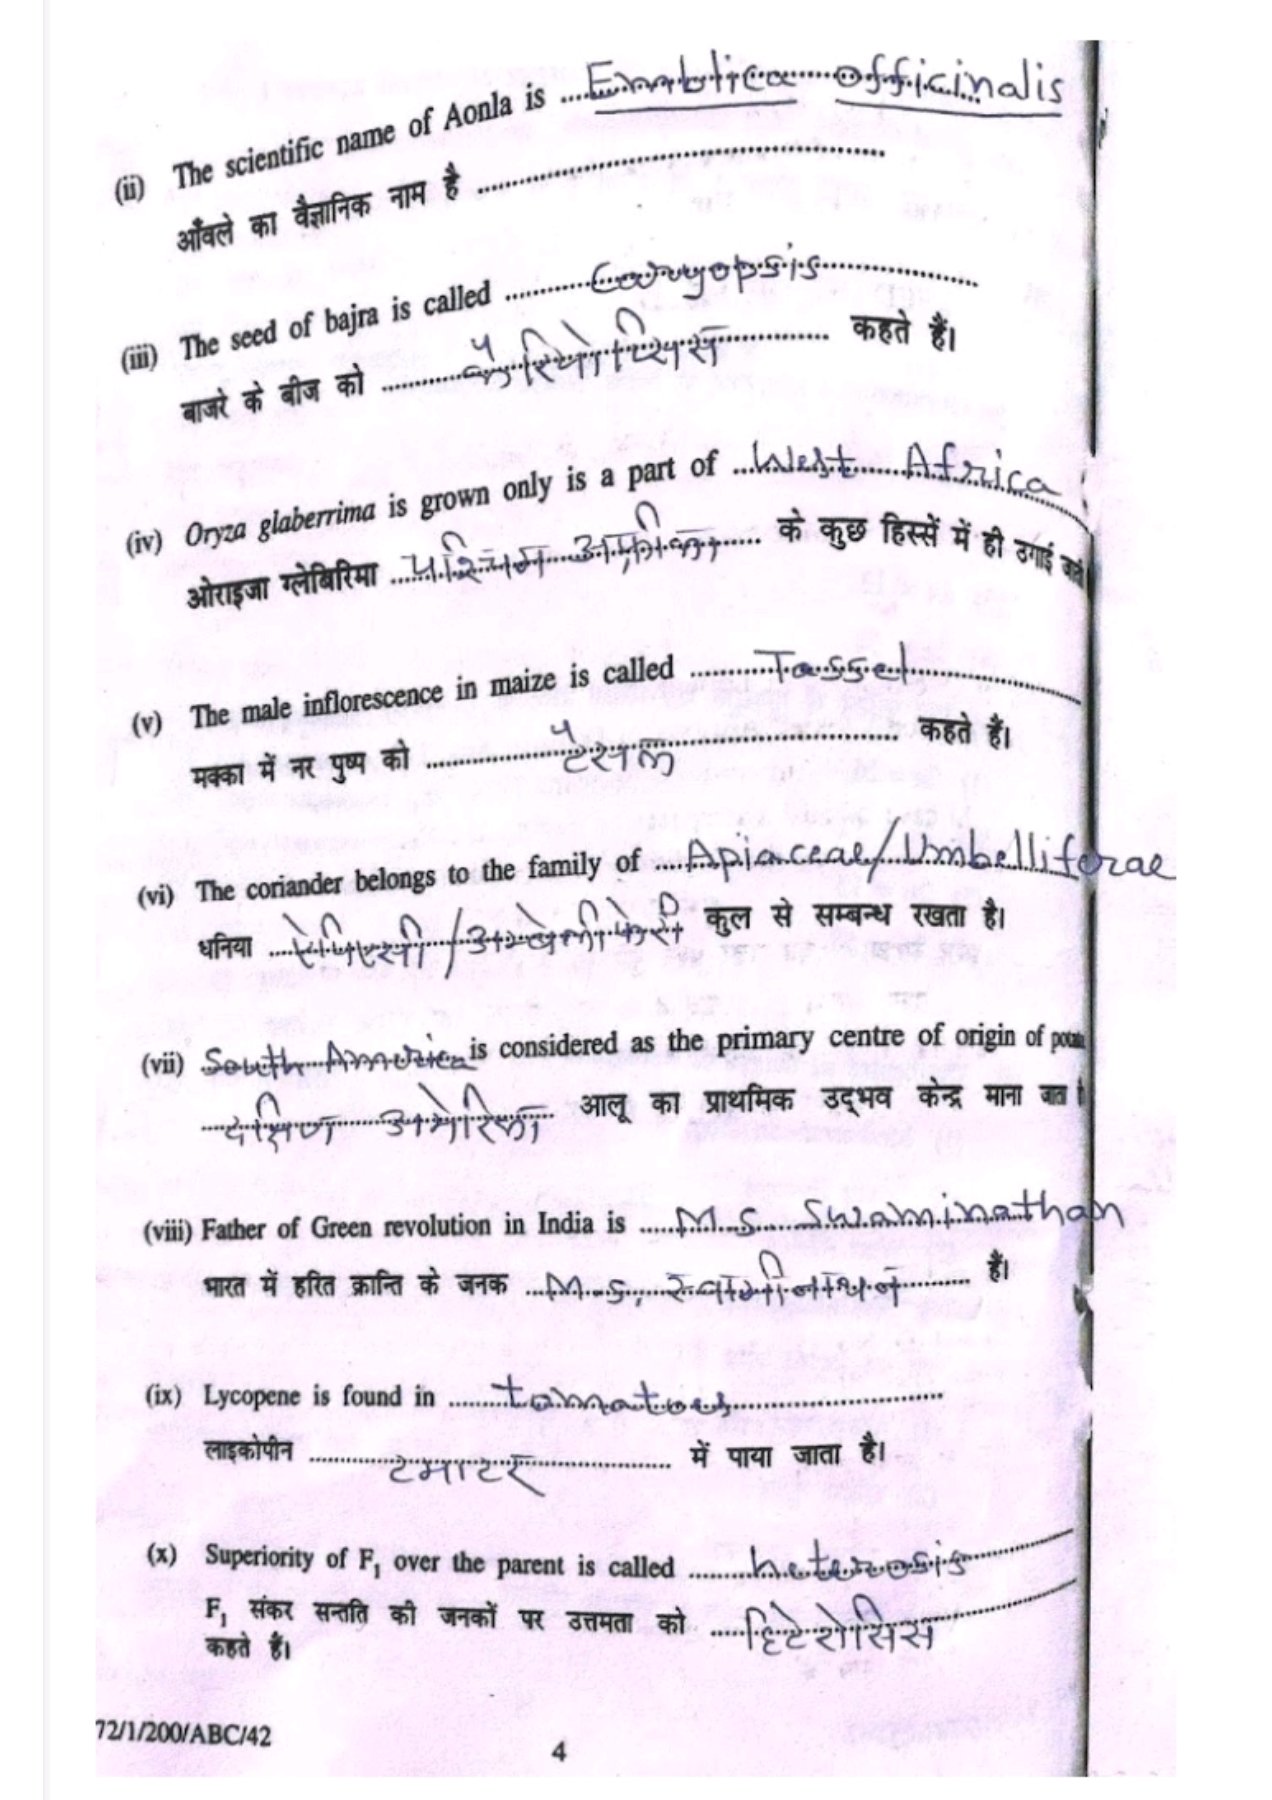 (ii) The scientific name of Aonla is ....Emblica officinalis
आँवले का वैज्ञानिक नाम है ....
(iii) The seed of bajra is called ....Caryopsis....
बाजरे के बीज को ....कैरियोप्सिस.... कहते हैं।
(iv) Oryza glaberrima is grown only is a part of ....West Africa
ओराइजा ग्लेबिरिमा ....पश्चिम अफ्रीका.... के कुछ हिस्सें में ही उगाई
(v) The male inflorescence in maize is called ....Tassel....
मक्का में नर पुष्प को ....टैसल.... कहते हैं।
(vi) The coriander belongs to the family of ....Apiaceae/Umbelliferae
धनिया ....ऐपिएसी/अम्बेलीफेरी कुल से सम्बन्ध रखता है।
(vii) South America is considered as the primary centre of origin of
दक्षिण अमेरिका आलू का प्राथमिक उद्भव केन्द्र माना
(viii) Father of Green revolution in India is ....M.S. Swaminathan
भारत में हरित क्रान्ति के जनक ....M.S. स्वामीनाथन.... हैं।
(ix) Lycopene is found in ....tomatoes....
लाइकोपीन ....टमाटर.... में पाया जाता है।
(x) Superiority of F₁ over the parent is called ....heterosis....
F₁ संकर सन्तति की जनकों पर उत्तमता को ....हिटेरोसिस
कहते हैं।
72/1/200/ABC/42
4